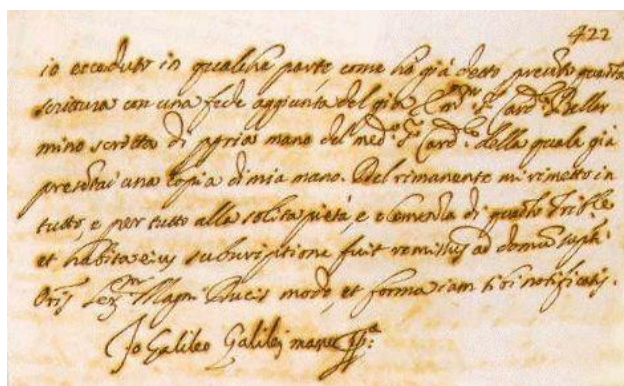 422
io ecceduto in qualche parte, come hò già detto presento questa
scrittura con una fede aggiunta del già Em.mo S.r Card.l Bellar
mino scritta di ppria mano del med.o S.r Card.le della quale già
presentai una copia di mia mano. Del rimanente mi rimetto in
tutto, e per tutto alla solita pietà, e clemenza di questo Trib.le
et habita eius subscriptione fuit remissus ad domum supti
Oris Ser.mi Magni Ducis modo, et forma iam sibi notificatis.
Io Galileo Galilei manu pp.a